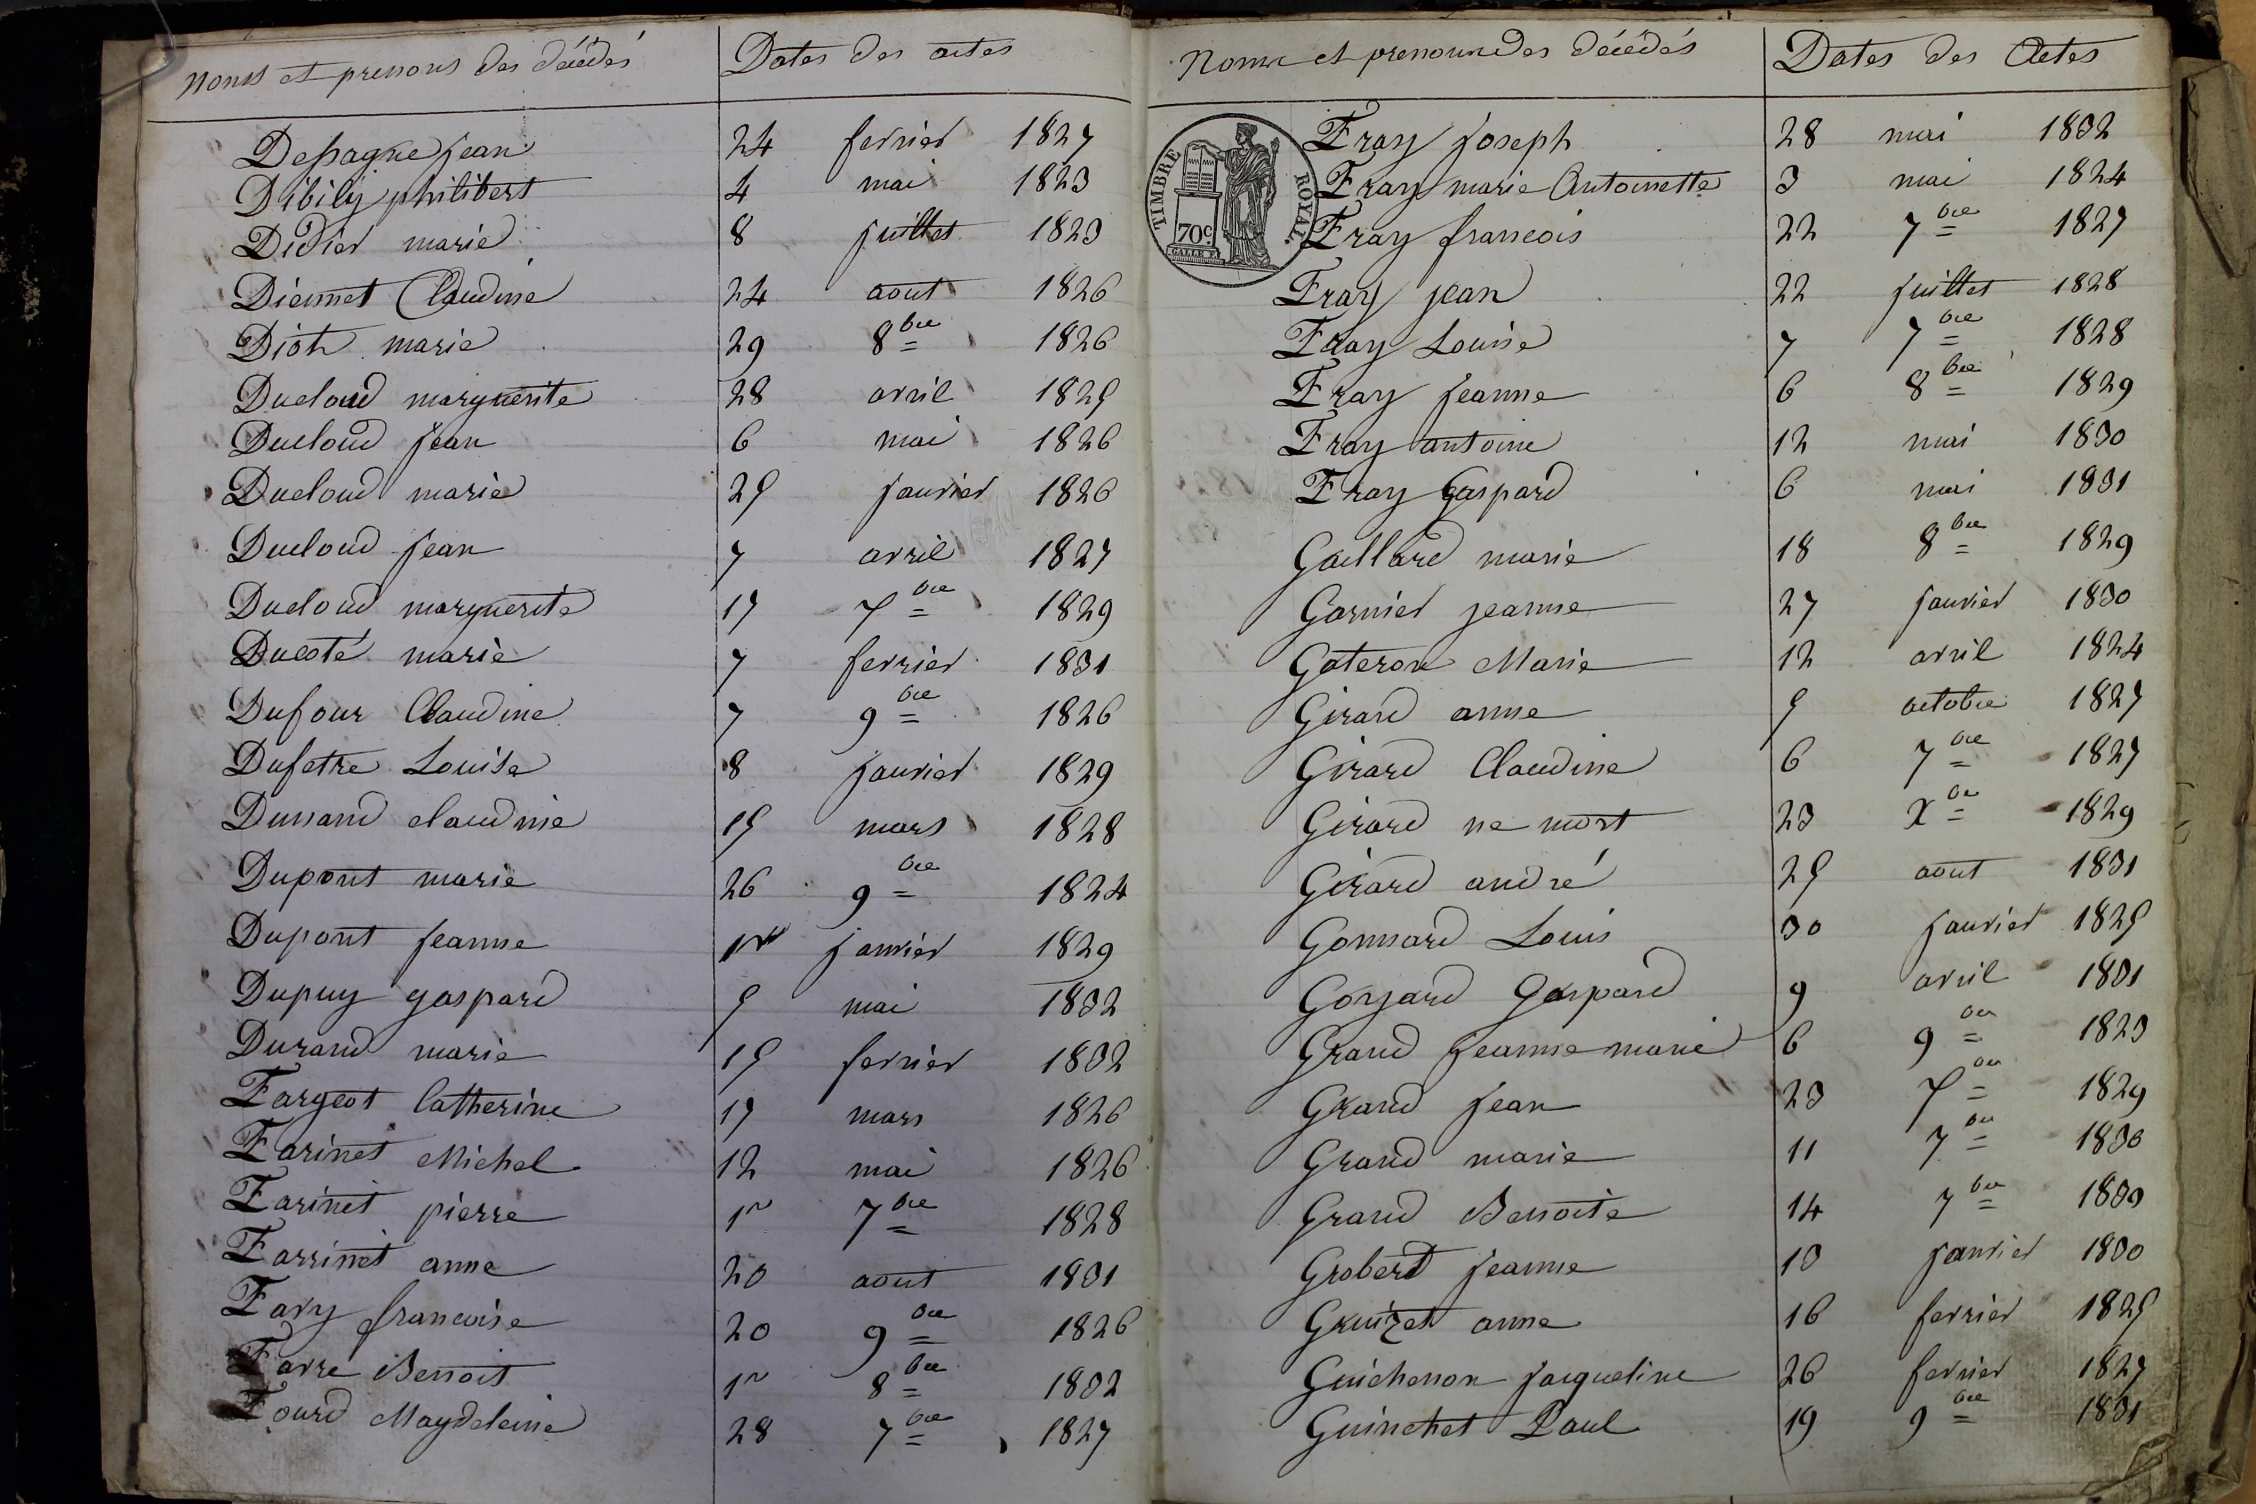 Noms et prenoms des décédés Dates des actes
Depagne jean 24 fevrier 1827
Dibily philibert 4 mai 1823
Didier marie 8 juillet 1823
Diennet Claudine 24 aout 1826
Dioth marie 29 8bre 1826
Ducloud marguerite 28 avril 1825
Ducloud jean 6 mai 1826
Ducloud marie 25 janvier 1826
Ducloud jean 7 avril 1827
Ducloud marguerite 17 7bre 1829
Ducoté marie 7 fevrier 1831
Dufour Claudine 7 9bre 1826
Dufetre Louise 8 janvier 1829
Dunand claudine 15 mars 1828
Dupont marie 26 9bre 1824
Dupont jeanne 1er janvier 1829
Dupuy gaspard 5 mai 1832
Durand marie 15 fevrier 1832
Fargeot Catherine 17 mars 1826
Farinet Michel 12 mai 1826
Farinet pierre 1er 7bre 1828
Farrinet anne 20 aout 1831
Fary francoise 20 9bre 1826
Farre Benoit 1er 8bre 1832
Fourd Magdeleine 28 7bre 1827
Noms et prenoms des décédés Dates des Actes
TIMBRE ROYAL
70c
Fray joseph 28 mai 1832
Fray marie Antoinette 3 mai 1824
Fray francois 22 7bre 1827
Fray jean 22 juillet 1828
Fray Louise 7 7bre 1828
Fray jeanne 6 8bre 1829
Fray antoine 12 mai 1830
Fray Gaspard 6 mai 1831
Gaillard marie 18 8bre 1829
Garnier jeanne 27 janvier 1830
Gateron Marie 12 avril 1824
Girard anne 5 octobre 1827
Girard Claudine 6 7bre 1827
Girard ne mort 23 Xbre 1829
Girard andré 25 aout 1831
Gonnard Louis 30 janvier 1825
Gonjard Gaspard 9 avril 1831
Grand jeanne marie 6 9bre 1823
Grand jean 23 7bre 1829
Grand marie 11 7bre 1830
Grand Benoite 14 7bre 1830
Grobert jeanne 13 janvier 1830
Gruizet anne 16 fevrier 1825
Guichenon jacqueline 26 fevrier 1827
Guinchet Paul 19 9bre 1831